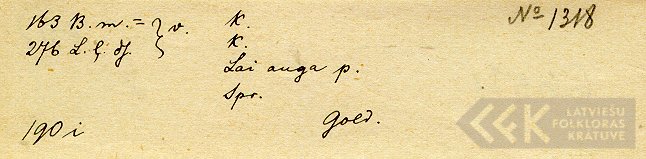 № 1318
163 B. m. = } v. K.
276 L. ļ. dſ. } K.
Lai auga p.
Spr.
190 i Gold.
LATVIEŠU
FOLKLORAS
KRĀTUVE